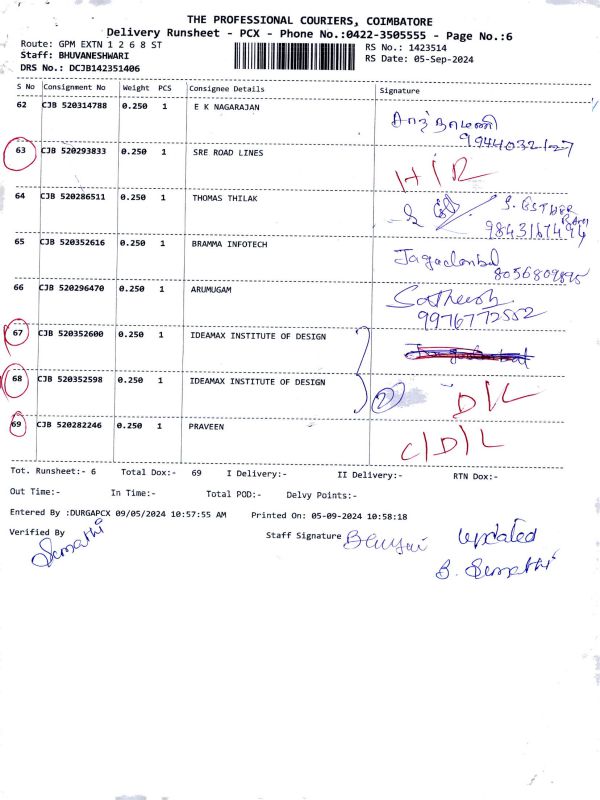 THE PROFESSIONAL COURIERS, COIMBATORE
Delivery Runsheet - PCX - Phone No.:0422-3505555 - Page No.:6
Route: GPM EXTN 1 2 6 8 ST
RS No.: 1423514
Staff: BHUVANESHWARI
RS Date: 05-Sep-2024
DRS No.: DCJB142351406
S No Consignment No Weight PCS Consignee Details Signature
62 CJB 520314788 0.250 1 E K NAGARAJAN
9944032127
63 CJB 520293833 0.250 1 SRE ROAD LINES
H/R
64 CJB 520286511 0.250 1 THOMAS THILAK
S. ESTHER
RANI
65 CJB 520352616 0.250 1 BRAMMA INFOTECH
8056809895
66 CJB 520296470 0.250 1 ARUMUGAM
Satheesh
9976772552
67 CJB 520352600 0.250 1 IDEAMAX INSTITUTE OF DESIGN
68 CJB 520352598 0.250 1 IDEAMAX INSTITUTE OF DESIGN
D/L
69 CJB 520282246 0.250 1 PRAVEEN
C/D/L
Tot. Runsheet:- 6 Total Dox:- 69 I Delivery:- II Delivery:- RTN Dox:-
Out Time:- In Time:- Total POD:- Delvy Points:-
Entered By :DURGAPCX 09/05/2024 10:57:55 AM Printed On: 05-09-2024 10:58:18
Verified By
Sumathi
Staff Signature
updated
B. Sumathi